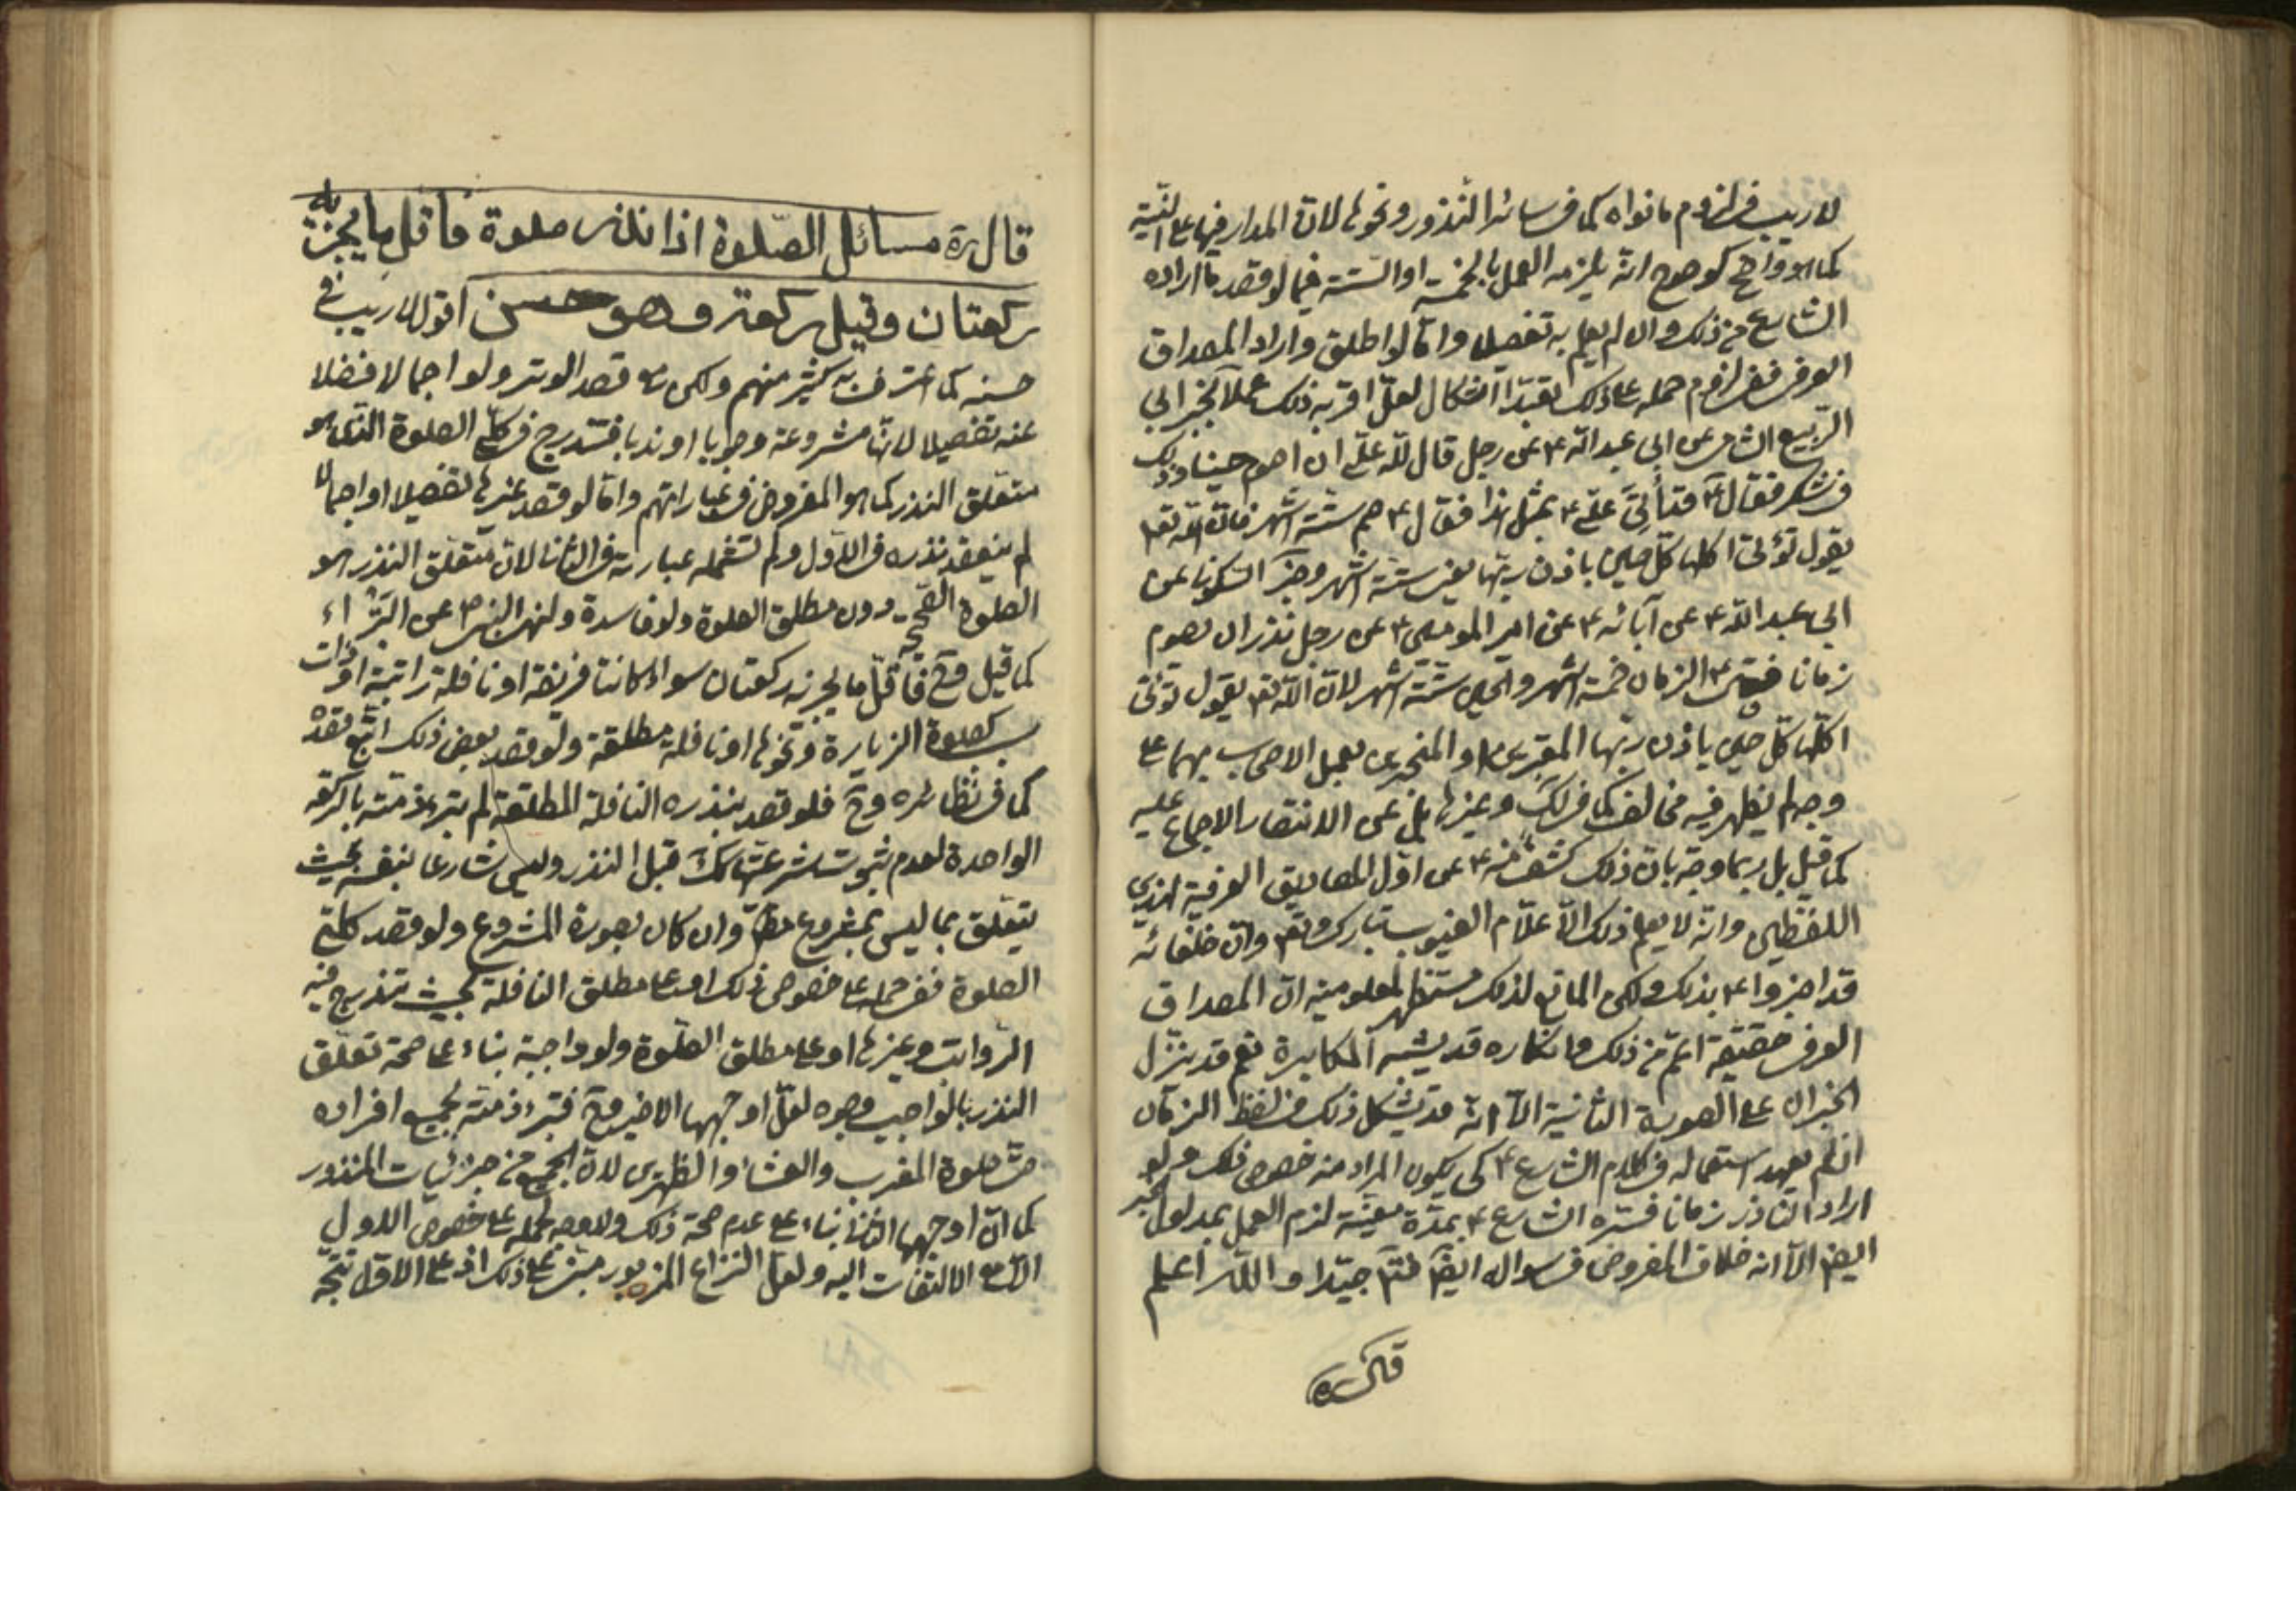 لا ريب في لزوم ما نواه كما في سائر النذور ونحوها لان المدار فيها على النية
كما هو واضح كوضوح انه يلزمه العمل بالخمسة او الستة فيما لو قصد ما اراده
الشارع من ذلك وان لم يعلم به تفصيلا واما لو اطلق واراد المصداق
العرفي ففي لزوم حمله على ذلك تعبدا اشكال لعل اقربه ذلك عملا بخبر ابي
الربيع الشامي عن ابي عبد الله ع عن رجل قال لله علي ان اصوم حينا وذلك
في شكر فقال ع قد أتي علي ع بمثل هذا فقال ع صم ستة اشهر فان الله تعا
يقول تؤتى اكلها كل حين باذن ربها يعني ستة اشهر وخبر السكوني عن
ابي عبد الله ع عن آبائه ع عن امير المومنين ع عن رجل نذر ان يصوم
زمانا فقال ع الزمان خمسة اشهر والحين ستة اشهر لان الله تعا يقول تؤتى
اكلها كل حين باذن ربها المعتبرين او المنجبرين بعمل الاصحاب بهما على
وجه لم يظهر فيه مخالف كما في لك وغيرها بل عن الانتصار الاجماع عليه
كما قيل بل ربما وجه بان ذلك كشف منه ع عن اول المصاديق العرفية لهذين
اللفظين وانه لا يعلم ذلك الا علام الغيوب تبارك وتعا وان خلفائه
قد اخبروا ع بذلك ولكن المانع لذلك مستظهر لمعلومية ان المصداق
العرفي حقيقة اعم من ذلك وانكاره قد يشبه المكابرة نعم قد ينزل
الخبران على الصورة الثانية الا انه قد يشكل ذلك في لفظ الزمان
اذ لم يعهد استعماله في كلام الشارع ع كي يكون المراد منه خصوص ذلك ولو
اراد الناذر زمانا فسره الشارع ع بمدة معينة لزم العمل بمدلول الخبر
ايضا الا انه خلاف المفروض في سواله ايضا فتم جيدا والله اعلم
قال ره
قال ره مسائل الصلوة اذا نذر صلوة فاقل ما يجزيه
ركعتان وقيل ركعة وهو حسن اقول لا ريب في
حسنه كما اعترف به كثير منهم ولكن مع قصد الوتر ولو اجمالا فضلا
عنه تفصيلا لانها مشروعة وجوبا او ندبا فتندرج في كلي الصلوة الذي هو
متعلق النذر كما هو المفروض في عباراتهم واما لو قصد غيرها تفصيلا او اجمالا
لم ينعقد نذره في الاول ولم تشمله عبارته في الثاني لان متعلق النذر هو
الصلوة الصحيحة دون مطلق الصلوة ولو فاسدة ولنهي النبي ص عن البتراء
كما قيل وح فاقل ما يجزيه ركعتان سواء كانتا فريضة او نافلة راتبة او ذات
سبب كصلوة الزيارة ونحوها او نافلة مطلقة ولو قصد بعض ذلك اتبع قصده
كما في نظائره وح فلو قصد بنذره النافلة المطلقة لم تبرء ذمته بالركعة
الواحدة لعدم ثبوت شرعيتها كك قبل النذر وليس شارعا بنفسه بحيث
يتعلق بما ليس بمشروع مط وان كان بصورة المشروع ولو قصد كلي
الصلوة ففي حمله على خصوص ذلك او على مطلق النافلة بحيث تندرج فيه
الرواتب وغيرها او على مطلق الصلوة ولو واجبة بناء على صحة تعلق
النذر بالواجب وجوه لعل اوجهها الاخير وح فتبرء ذمته بجميع افراده
حتى صلوة المغرب والعشاء والظهرين لان الجميع من جزئيات المنذور
كما ان اوجهها الثاني بناء على عدم صحة ذلك ولا وجه لحمله على خصوص الاول
الا مع الالتفات اليه ولعل النزاع المزبور مبني على ذلك اذ على الاول يتجه